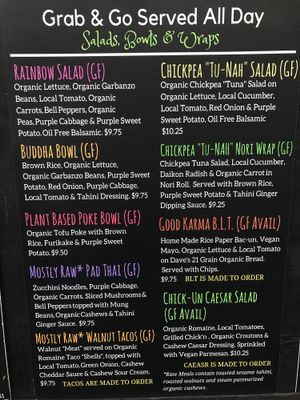 Grab & Go Served All Day
Salads, Bowls & Wraps
RAINBOW SALAD (GF)
Organic Lettuce, Organic Garbanzo
Beans, Local Tomato, Organic
Carrots, Bell Peppers, Organic
Peas, Purple Cabbage & Purple Sweet
Potato. Oil Free Balsamic. $9.75
BUDDHA BOWL (GF)
Brown Rice, Organic Lettuce,
Organic Garbanzo Beans, Purple Sweet
Potato, Red Onion, Purple Cabbage,
Local Tomato & Tahini Dressing. $9.75
PLANT BASED POKE BOWL (GF)
Organic Tofu Poke with Brown
Rice, Furikake & Purple Sweet
Potato. $9.50
MOSTLY RAW* PAD THAI (GF)
Zucchini Noodles, Purple Cabbage,
Organic Carrots, Sliced Mushrooms &
Bell Peppers topped with Mung
Beans, Organic Cashews & Tahini
Ginger Sauce. $9.75
MOSTLY RAW* WALNUT TACOS (GF)
Walnut "Meat" served on Organic
Romaine Taco "Shells", topped with
Local Tomato, Green Onion, Cashew
Cheddar Sauce & Cashew Sour Cream.
$9.75 TACOS ARE MADE TO ORDER
CHICKPEA "TU-NAH" SALAD (GF)
Organic Chickpea "Tuna" Salad on
Organic Lettuce, Local Cucumber,
Local Tomato, Red Onion & Purple
Sweet Potato. Oil Free Balsamic
$10.25
CHICKPEA "TU-NAH" NORI WRAP (GF)
Chickpea Tuna Salad, Local Cucumber,
Daikon Radish & Organic Carrot in
Nori Roll. Served with Brown Rice,
Purple Sweet Potato & Tahini Ginger
Dipping Sauce. $9.25
GOOD KARMA B.L.T. (GF AVAIL)
Home Made Rice Paper Bac-un, Vegan
Mayo, Organic Lettuce & Local Tomato
on Dave's 21 Grain Organic Bread.
Served with Chips.
$9.75 BLT IS MADE TO ORDER
CHICK-UN CAESAR SALAD
(GF AVAIL)
Organic Romaine, Local Tomatoes,
Grilled Chick'n, Organic Croutons &
Cashew Caesar Dressing. Sprinkled
with Vegan Parmesan. $10.25
CAEASR IS MADE TO ORDER
*Raw Meals contain toasted sesame tahini,
roasted walnuts and steam pasteurized
organic cashews.